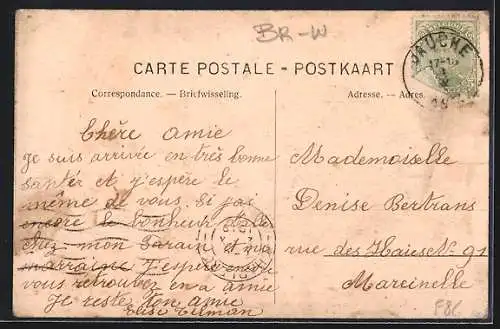 BR-W
CARTE POSTALE - POSTKAART
Correspondance. — Briefwisseling.
Adresse. — Adres.
JAUCHE
17-18
Chère amie
je suis arrivée en très bonne
santér et j'espère le
même de vous. Si j'ai
encore le bonheur
chez mon parain et ma
marraine J'espère
vous retrouvez en a amie
Je reste ton amie
Elise Tilman
Mademoiselle
Denise Bertrans
rue des Haies No 91
Marcinelle
F86